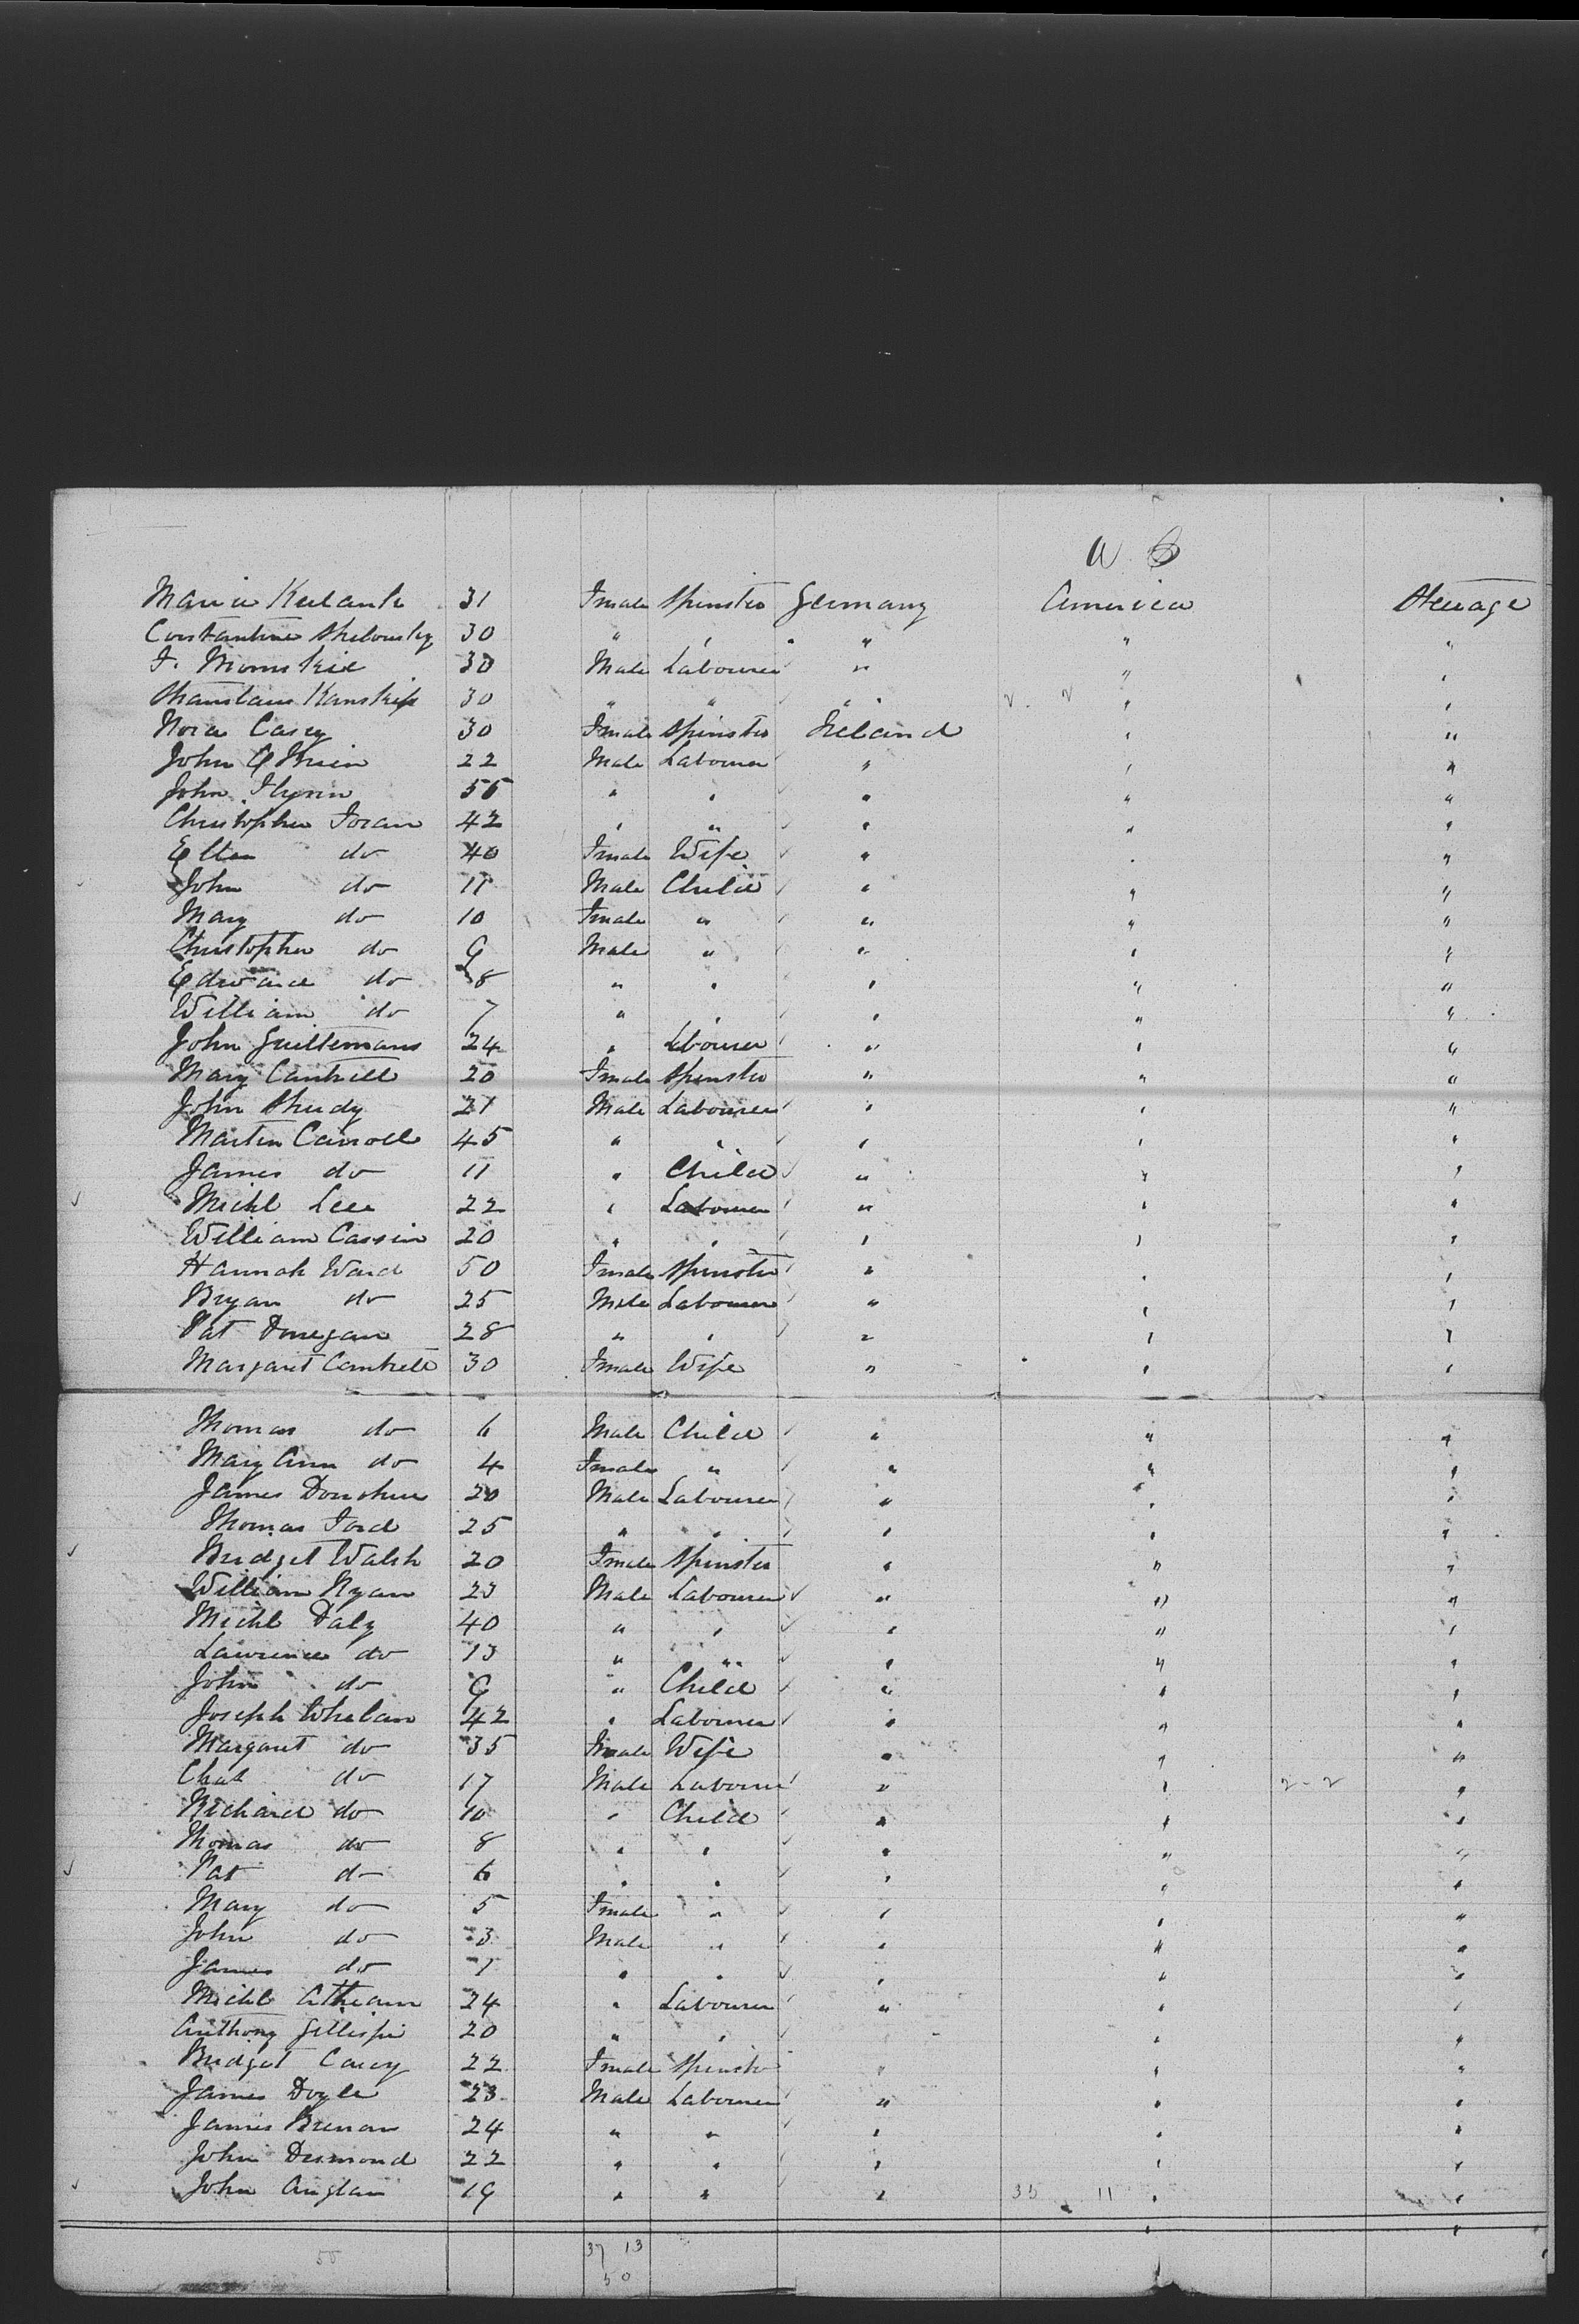 W. C
Maria 31 Fmale Spinster Germany America Steuage
Constantine 30 " " " " "
F. 30 Male Labourer " " "
30 " " " 2. 2 " "
Nora Casey 30 Fmale Spinster Ireland " "
John O'Brien 22 Male Labourer " " "
John Flynn 55 " " " " "
Christopher Foran 42 " " " " "
Ellen do 40 Fmale Wife " " "
John do 11 Male Child " " "
Mary do 10 Fmale " " " "
Christopher do 9 Male " " " "
Edward do 8 " " " " "
William do 7 " " " " "
John 24 " Lbourer " " "
Mary Cantrell 20 Fmale Spinster " " "
John Sheedy 21 Male Labourer " " "
Martin Carroll 45 " " " " "
James do 11 " Child " " "
Michl Lee 22 " Labourer " " "
William Cassin 20 " " " " "
Hannah Ward 50 Fmale Spinster " " "
Bryan do 25 Male Labourer " " "
Pat Donegan 28 " " " " "
Margaret Cantrell 30 Fmale Wife " " "
Thomas do 6 Male Child " " "
Mary Ann do 4 Fmale " " " "
James Donohue 20 Male Labourer " " "
Thomas Ford 25 " " " " "
Bridget Walsh 20 Fmale Spinster " " "
William Ryan 23 Male Labourer " " "
Michl Daly 40 " " " " "
Lawrence do 13 " " " " "
John do 9 " Child " " "
Joseph Whelan 42 " Labourer " " "
Margaret do 35 Fmale Wife " " "
Chas do 17 Male Labourer " " 2-2 "
Richard do 10 " Child " " "
Thomas do 8 " " " " "
Pat do 6 " " " " "
Mary do 5 Fmale " " " "
John do 3 Male " " " "
James do 1 " " " " "
Michl 24 " Labourer " " "
Anthony Gillispi 20 " " " " "
Bridget 22 Fmale Spinster " " "
James Doyle 23 Male Labourer " " "
James Brenan 24 " " " " "
John Desmond 22 " " " " "
John Anglan 19 " " " 35 11 " "
" "
50 37 13
50